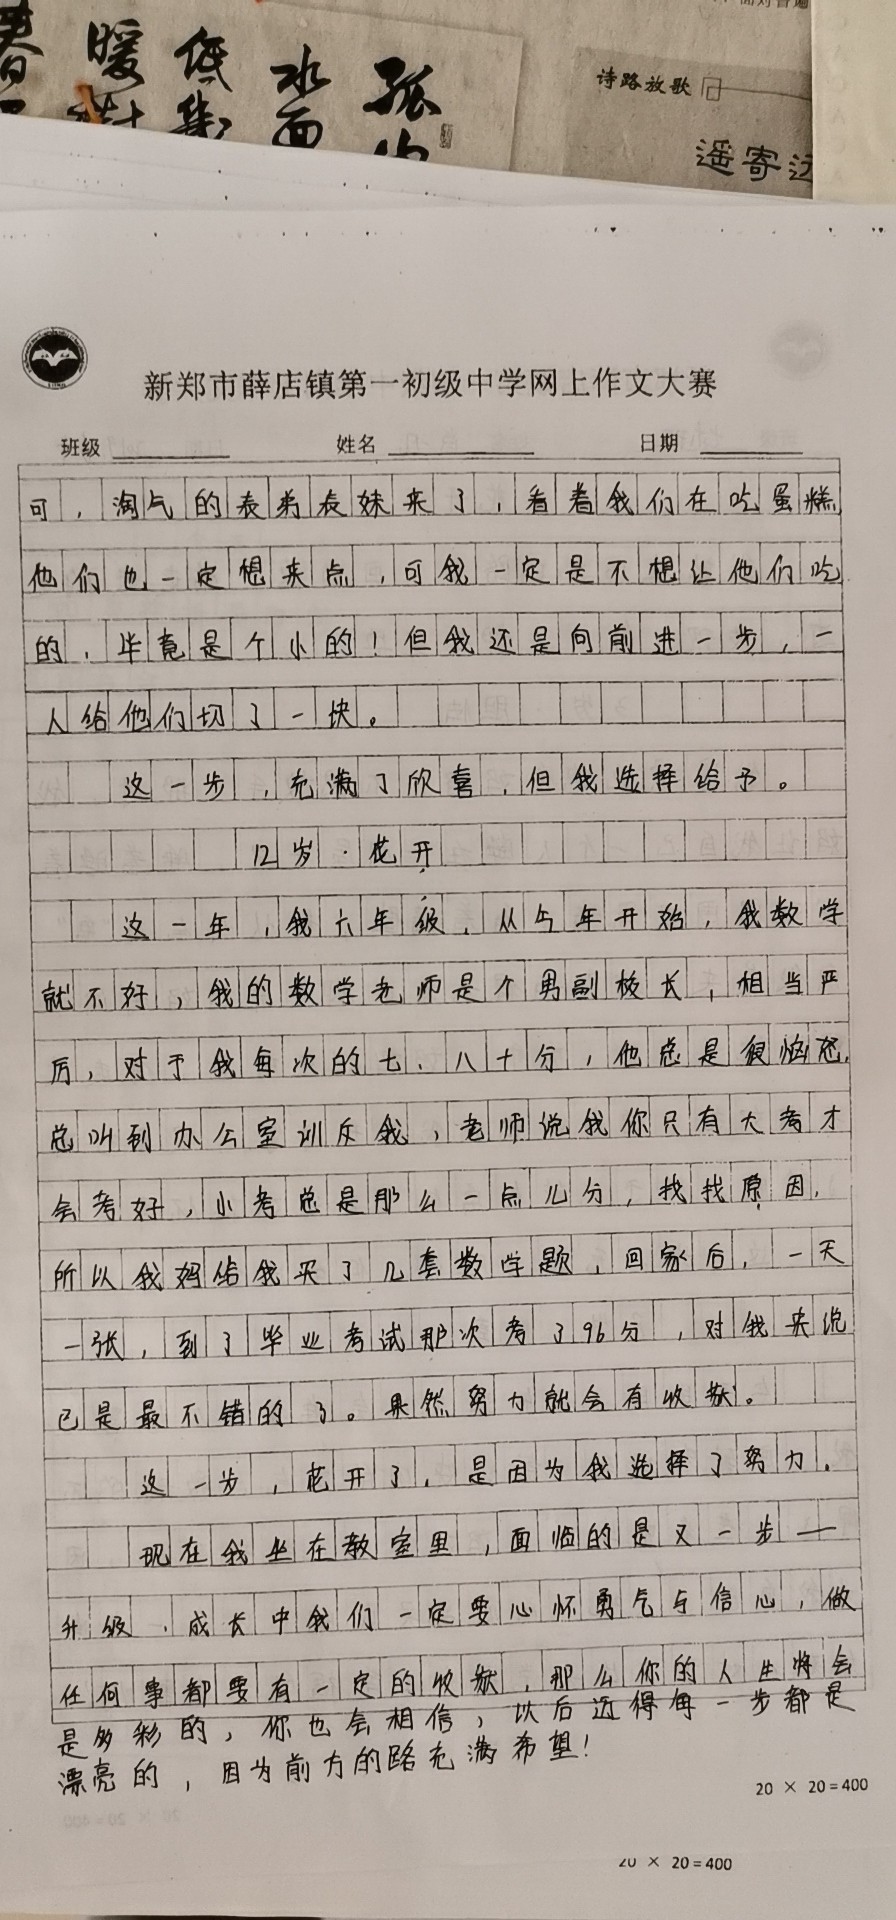 暖 低 水面 孤
诗路放歌
遥寄远
新郑市薛店镇第一初级中学网上作文大赛
班级 姓名 日期
可，淘气的表弟表妹来了，看着我们在吃蛋糕
他们也一定想来点，可我一定是不想让他们吃
的，毕竟是个小的！但我还是向前进一步，一
人给他们切了一块。
这一步，充满了欣喜，但我选择给予。
12岁·花开
这一年，我六年级，从与年开始，我数学
就不好，我的数学老师是个男副校长，相当严
厉，对于我每次的七、八十分，他总是很恼怒，
总叫到办公室训斥我，老师说我你只有大考才
会考好，小考总是那么一点儿分，找找原因，
所以我妈给我买了几套数学题，回家后，一天
一张，到了毕业考试那次考了96分，对我来说
已是最不错的了。果然努力就会有收获。
这一步，花开了，是因为我选择了努力。
现在我坐在教室里，面临的是又一步——
升级，成长中我们一定要心怀勇气与信心，做
任何事都要有一定的收获，那么你的人生将会
是多彩的，你也会相信，以后迈得每一步都是
漂亮的，因为前方的路充满希望！
20 × 20=400
20 × 20=400